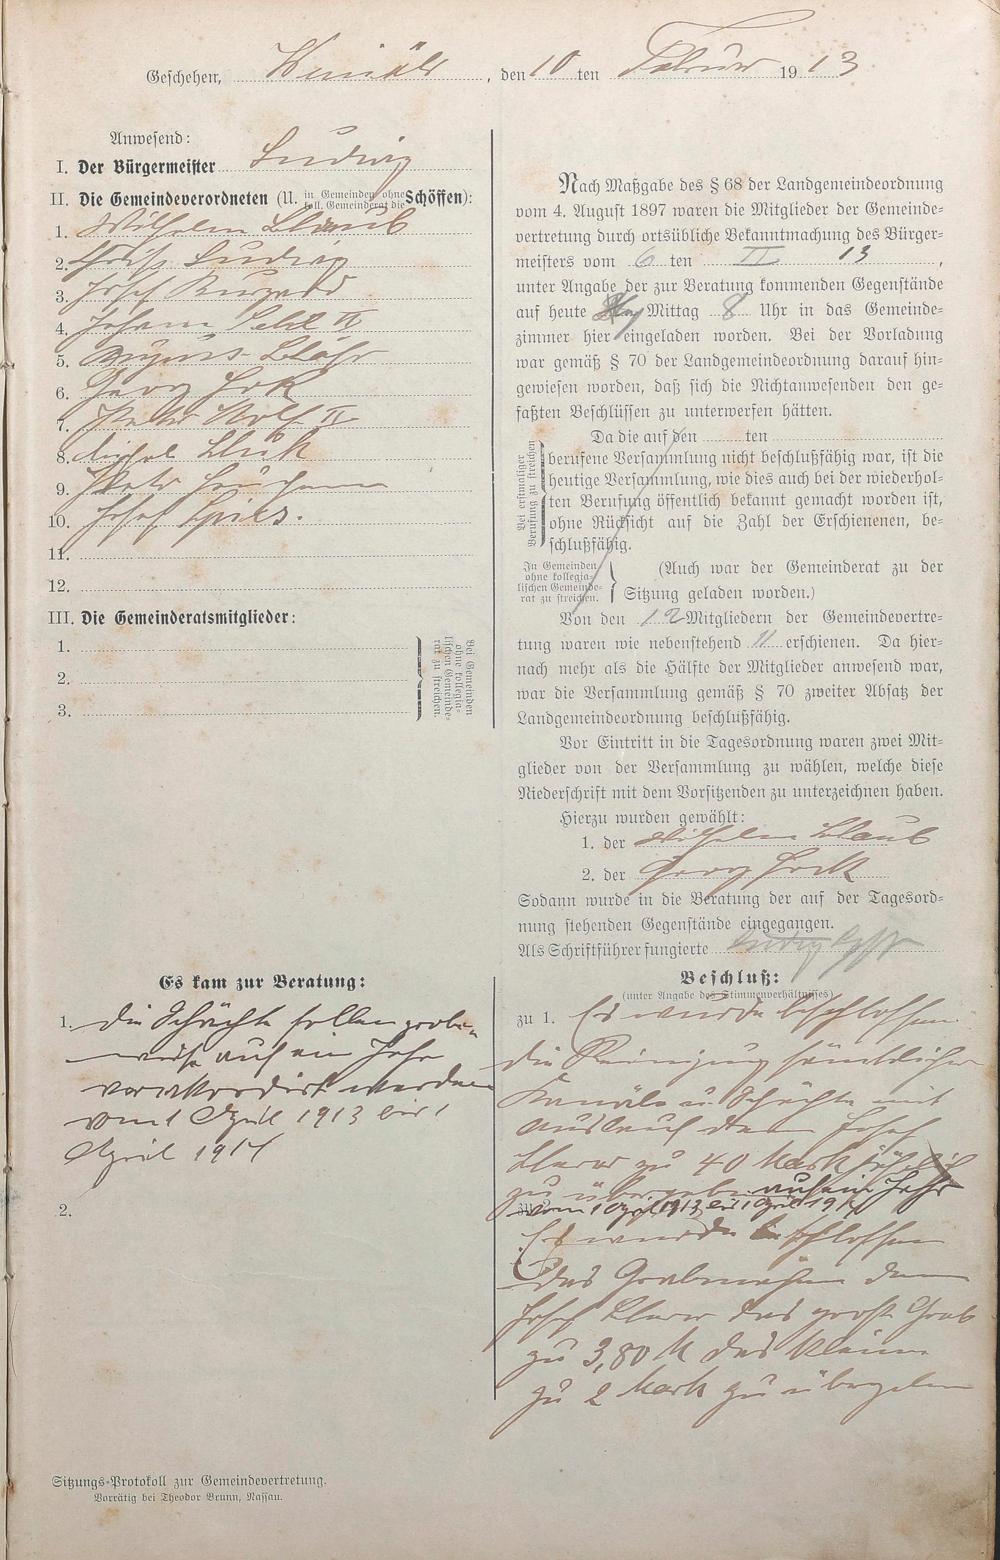 Geschehen, Winäls, den 10 ten Februar 1913
Anwesend:
I. Der Bürgermeister Ludwig
II. Die Gemeindeverordneten (U. in Gemeinden ohne koll. Gemeinderat die Schöffen):
1. Wilhelm Blaub
2. Ludwig
3. Josef
4. Johann II
5.
6. Georg Hock
7. Peter Wolf II
8.
9. Peter
10. Josef Spies.
11.
12.
III. Die Gemeinderatsmitglieder:
1.
2.
3.
Bei Gemeinden ohne kollegialischen Gemeinderat zu streichen.
Nach Maßgabe des § 68 der Landgemeindeordnung
vom 4. August 1897 waren die Mitglieder der Gemeinde-
vertretung durch ortsübliche Bekanntmachung des Bürger-
meisters vom 6 ten II 13,
unter Angabe der zur Beratung kommenden Gegenstände
auf heute Mittag 8 Uhr in das Gemeinde-
zimmer hier eingeladen worden. Bei der Vorladung
war gemäß § 70 der Landgemeindeordnung darauf hin-
gewiesen worden, daß sich die Nichtanwesenden den ge-
faßten Beschlüssen zu unterwerfen hätten.
Da die auf den ten
Bei erstmaliger Berufung zu streichen
berufene Versammlung nicht beschlußfähig war, ist die
heutige Versammlung, wie dies auch bei der wiederhol-
ten Berufung öffentlich bekannt gemacht worden ist,
ohne Rücksicht auf die Zahl der Erschienenen, be-
schlußfähig.
In Gemeinden ohne kollegialischen Gemeinderat zu streichen.
(Auch war der Gemeinderat zu der
Sitzung geladen worden.)
Von den 12 Mitgliedern der Gemeindevertre-
tung waren wie nebenstehend 11 erschienen. Da hier-
nach mehr als die Hälfte der Mitglieder anwesend war,
war die Versammlung gemäß § 70 zweiter Absatz der
Landgemeindeordnung beschlußfähig.
Vor Eintritt in die Tagesordnung waren zwei Mit-
glieder von der Versammlung zu wählen, welche diese
Niederschrift mit dem Vorsitzenden zu unterzeichnen haben.
Hierzu wurden gewählt:
1. der Wilhelm Blaub
2. der Georg Hock
Sodann wurde in die Beratung der auf der Tagesord-
nung stehenden Gegenstände eingegangen.
Als Schriftführer fungierte Ludwig
Es kam zur Beratung:
1. Die Schächte sollen probe-
weise auf ein Jahr
verakkordirt werden
vom 1 April 1913 bis 1
April 1914
2.
Beschluß:
(unter Angabe des Stimmenverhältnisses)
zu 1. Es wurde beschlossen
die Reinigung sämtlicher
Kanäle u. Schächte mit
Auslauf dem Josef
zu 40 Mark jährlich
zu übergeben auf ein Jahr
zu 2. vom 1 April 1913 bis 1 April 1914
Es wurde beschlossen
das Grabmachen dem
Josef das große Grab
zu 3,80 M das kleine
zu 2 Mark zu übergeben
Sitzungs-Protokoll zur Gemeindevertretung.
Vorrätig bei Theodor Brunn, Nassau.